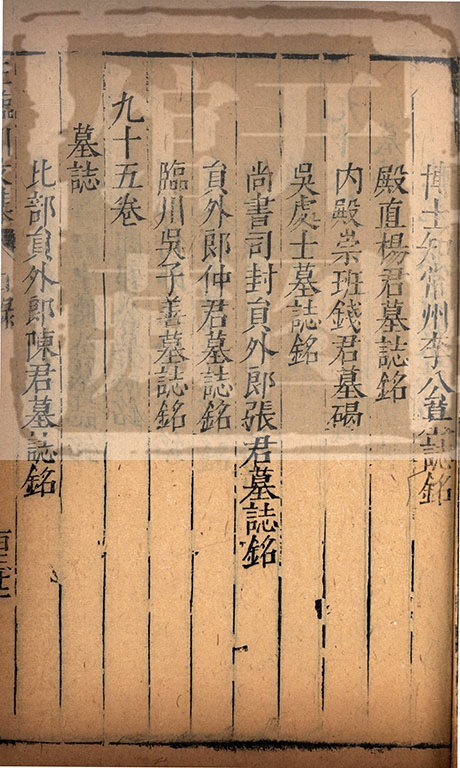 博士知常州李公墓誌銘
殿直楊君墓誌銘
内殿崇班錢君墓碣
吳處士墓誌銘
尚書司封員外郎張君墓誌銘
員外郎仲君墓誌銘
臨川吳子善墓誌銘
九十五卷
墓誌
比部員外郎陳君墓誌銘
王臨川文集 目録